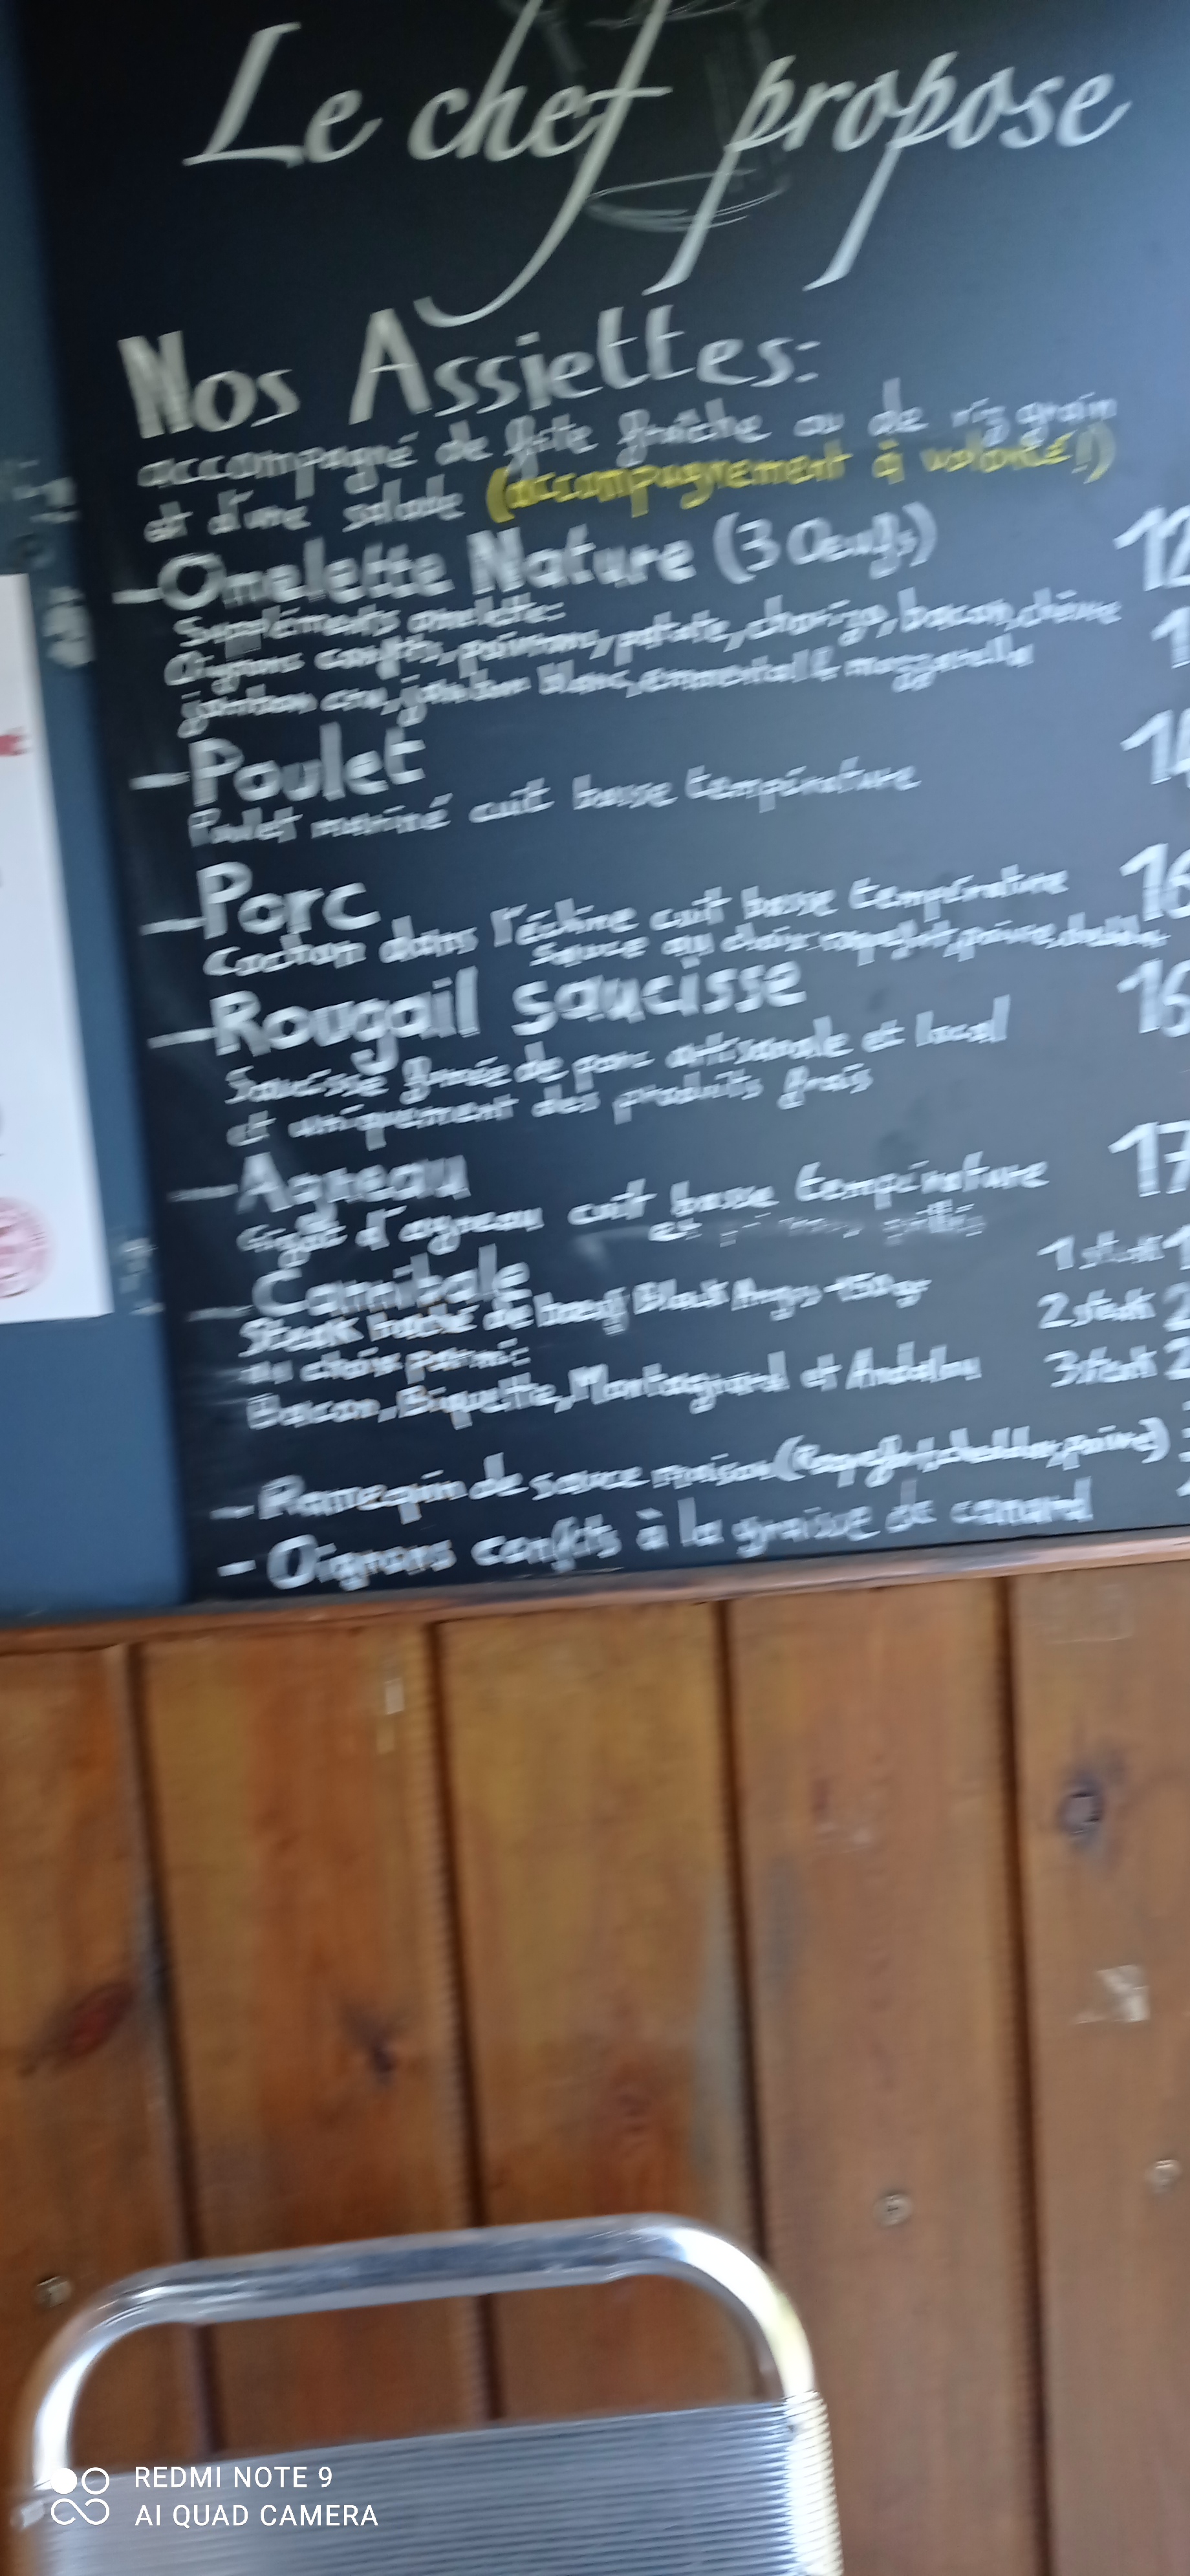 Le chef propose
Nos Assiettes:
accompagné de frite fraîche ou de riz grain
et d'une salade (accompagnement à volonté!)
-Omelette Nature (3 Oeufs) 12
Suppléments omelette:
Oignons confits, poivrons, patate, chorizo, bacon, chèvre 1
jambon cru, jambon blanc, emmental & mozzarella
-Poulet 14
Poulet mariné cuit basse température
-Porc 16
Cochon dans l'échine cuit basse température
Sauce au choix: roquefort, poivre, cheddar
-Rougail saucisse 16
Saucisse fumée de porc artisanale et local
et uniquement des produits frais
-Agneau 17
Gigot d'agneau cuit basse température
et
-Cannibale 1 steak 1
Steak haché de boeuf Black Angus 150gr 2 steak 2
au choix parmi: 3 steak 2
Bacon, Biquette, Montagnard et Andalou
- Ramequin de sauce maison (roquefort, cheddar, poivre)
- Oignons confits à la graisse de canard
REDMI NOTE 9
AI QUAD CAMERA